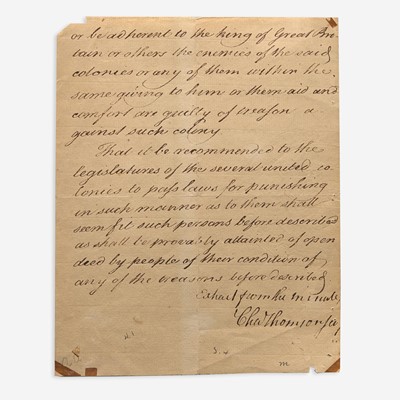 or be adherent to the king of Great Bri-
tain or others the enemies of the said
colonies or any of them within the
same giving to him or them aid and
comfort are guilty of treason a
gainst such colony
That it be recommended to the
legislatures of the several united co
lonies to pass laws for punishing
in such manner as to them shall
seem fit such persons before described
as shall be provably attainted of open
deed by people of their condition of
any of the treasons before described
Extract from the minutes
Cha Thomson secy